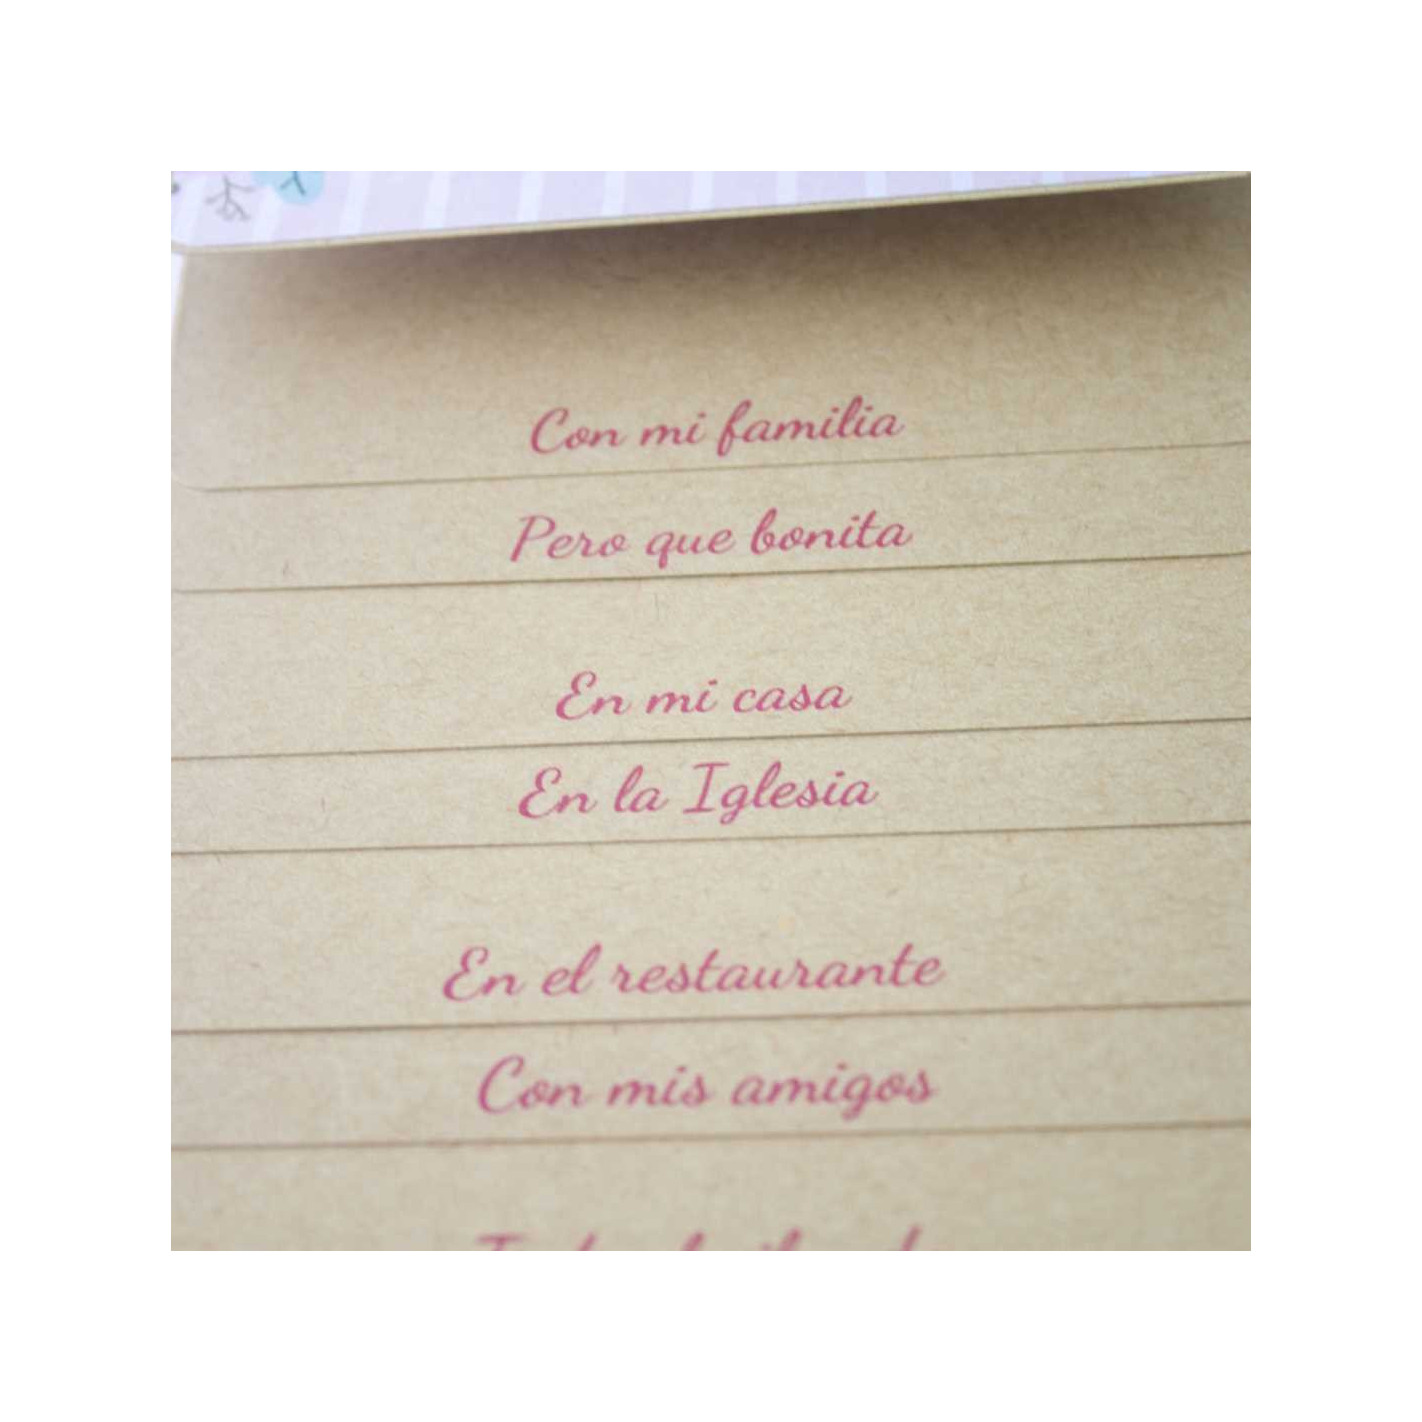 Con mi familia
Pero que bonita
En mi casa
En la Iglesia
En el restaurante
Con mis amigos